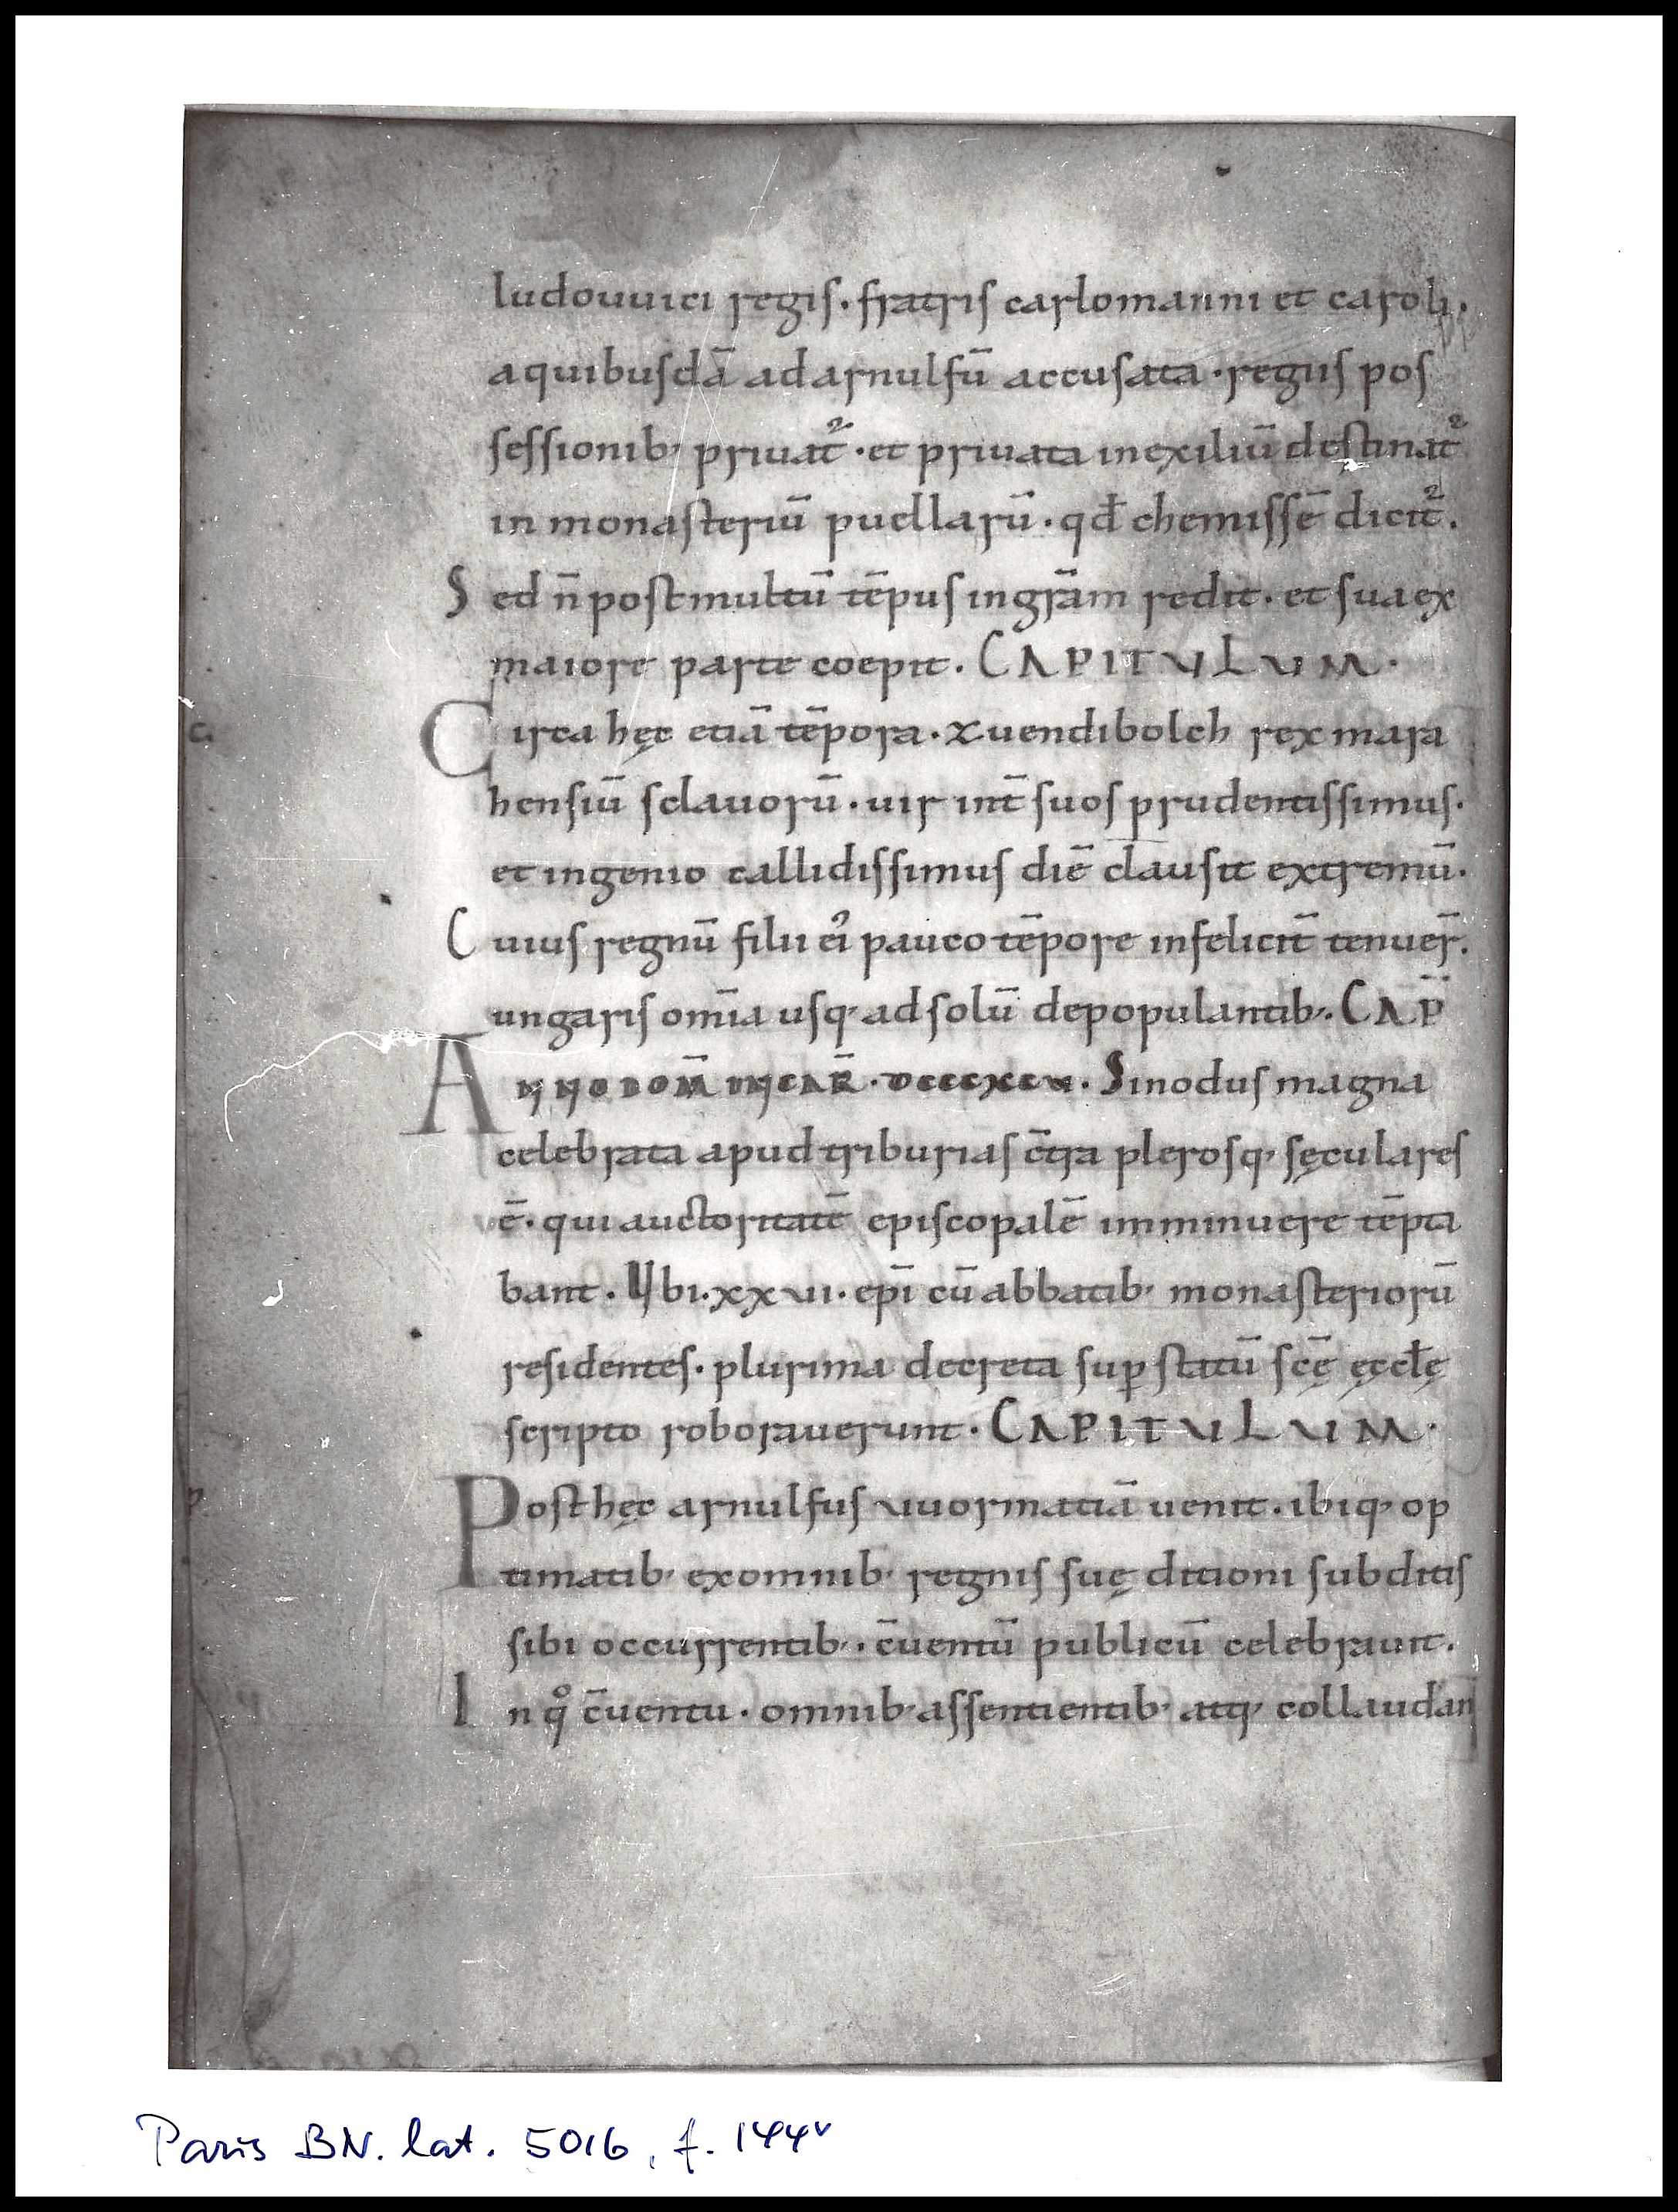 ludouuici regis. fratris carlomanni et caroli.
a quibusdā ad arnulfū accusata. regiis pos
sessionib; priuat̄. et priuata in exiliū destinat̄
in monasteriū puellarū. qđ chemissē dicit̄.
Sed n̄ post multū tēpus in grām redit. et sua ex
maiore parte coepit. CAPITULUM.
Circa hęc etiā tēpora. zuendibolch rex mara
hensiū sclauorū. uir int̄ suos prudentissimus.
et ingenio callidissimus diē clausit extremū.
Cuius regnū filii ei᾽ pauco tēpore infelicit̄ tenuer̄.
ungaris om̄ia usq; ad solū depopulantib;. CAP̄
ANNO DOM̄ INCAR̄. DCCCXCV. Sinodus magna
celebrata apud triburias c̄tra plerosq; sęculares
ē. qui auctoritatē episcopalē imminuere tēpta
bant. Ubi. xxvii. ep̄i cū abbatib; monasteriorū
residentes. plurima decreta suꝑ statū sc̄ę ęccłę
scripto roborauerunt. CAPITULUM.
Post hęc arnulfus uuormatiā uenit. ibiq; op
timatib; ex omnib; regnis suę ditioni subditis
sibi occurrentib;. c̄uentū publicū celebrauit.
In qͦ c̄uentu. omnib; assentientib; atq; collaudan
C.
P
Paris BN. lat. 5016, f. 144v